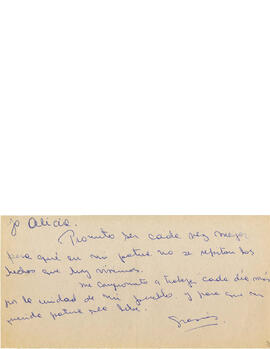 yo Alicia.
Prometo ser cada vez mejor
para que en mi patria no se repitan los
hechos que hoy vivimos.
me comprometo a trabajar cada día más
por la unidad de mi pueblo, y para que mi
patria sea libre.